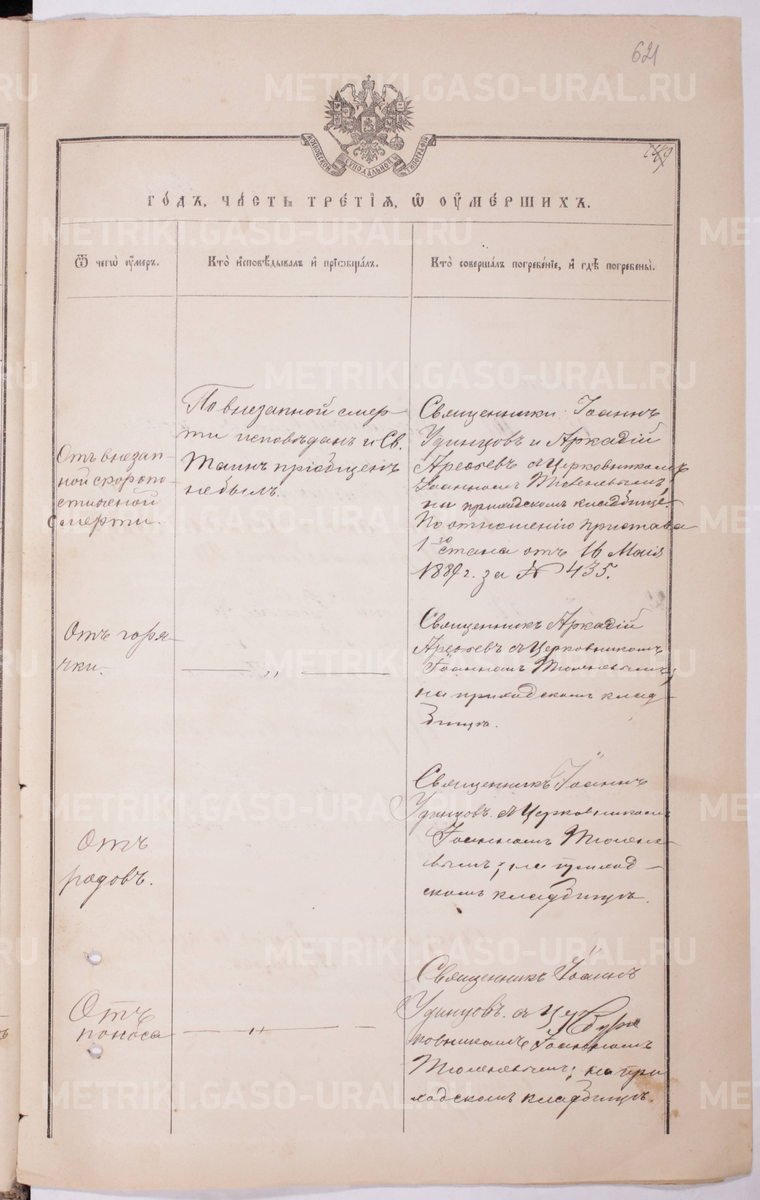 621
ГОДЪ, ЧАСТЬ ТРЕТІЯ, Ѿ ОУМЕРШИХЪ.
Ѿ чегѡ оумеръ.
Кто исповѣдывалъ и пріобщалъ.
Кто совершалъ погребеніе, и гдѣ погребены.
Отъ внезап-
ной скоропо-
стижной
смерти.
По внезапной смер-
ти исповѣданъ и Св.
Таинъ пріобщенъ
не былъ.
Священники Іоаннъ
Удинцовъ и Аркадій
Арефьевъ съ Церковникомъ
Іоанномъ Тюленевымъ,
на приходскомъ кладбищѣ.
По отношенію пристава
1го стана отъ 16 Маія
1889 г. за № 435.
Отъ горя-
чки.
— „ —
Священникъ Аркадій
Арефьевъ съ Церковникомъ
Іоанномъ Тюленевымъ,
на приходскомъ клад-
бищѣ.
Отъ
родовъ.
Священникъ Іоаннъ
Удинцовъ съ Церковникомъ
Іоанномъ Тюлене-
вымъ; на приход-
скомъ кладбищѣ.
Отъ
поноса
— „ —
Священникъ Іоаннъ
Удинцовъ съ Цер
ковникомъ Іоанномъ
Тюленевымъ; на при
ходскомъ кладбищѣ.
METRIKI.GASO-URAL.RU